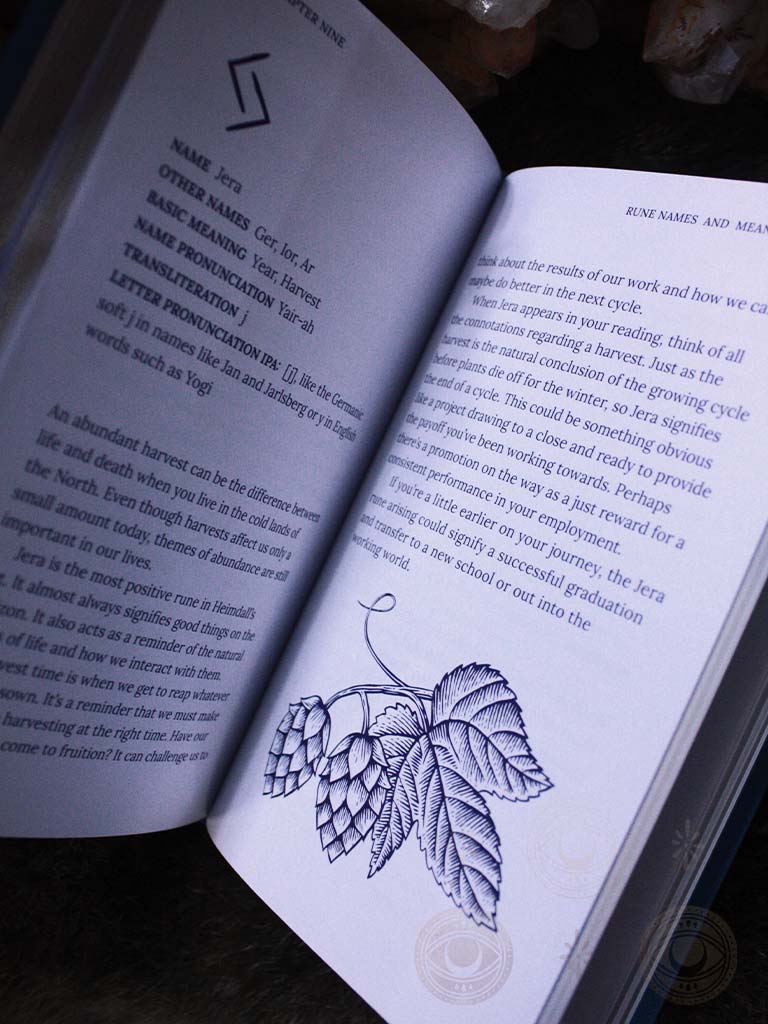 CHAPTER NINE
NAME Jera
OTHER NAMES Ger, Ior, Ar
BASIC MEANING Year, Harvest
NAME PRONUNCIATION Yair-ah
TRANSLITERATION j
LETTER PRONUNCIATION IPA: [j], like the Germanic
soft j in names like Jan and Jarlsberg or y in English
words such as Yogi
An abundant harvest can be the difference between
life and death when you live in the cold lands of
the North. Even though harvests affect us only a
small amount today, themes of abundance are still
important in our lives.
Jera is the most positive rune in Heimdall's
It almost always signifies good things on the
It also acts as a reminder of the natural
of life and how we interact with them.
time is when we get to reap whatever
sown. It's a reminder that we must make
harvesting at the right time. Have our
come to fruition? It can challenge us to
RUNE NAMES AND
think about the results of our work and how we
maybe do better in the next cycle.
When Jera appears in your reading, think of all
the connotations regarding a harvest. Just as the
harvest is the natural conclusion of the growing cycle
before plants die off for the winter, so Jera signifies
the end of a cycle. This could be something obvious
like a project drawing to a close and ready to provide
the payoff you've been working towards. Perhaps
there's a promotion on the way as a just reward for a
consistent performance in your employment.
If you're a little earlier on your journey, the Jera
rune arising could signify a successful graduation
and transfer to a new school or out into the
working world.